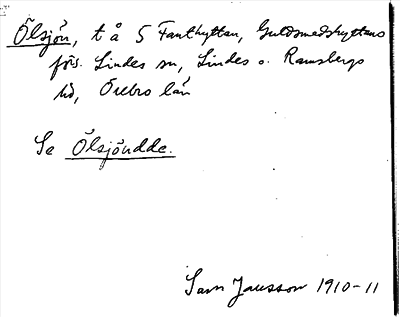 Ölsjön, t å S Fanthyttan, Guldsmedshyttans
förs. Lindes sn, Lindes o. Ramsbergs
hd, Örebro län
Se Ölsjöudde.
Sam Jansson 1910-11